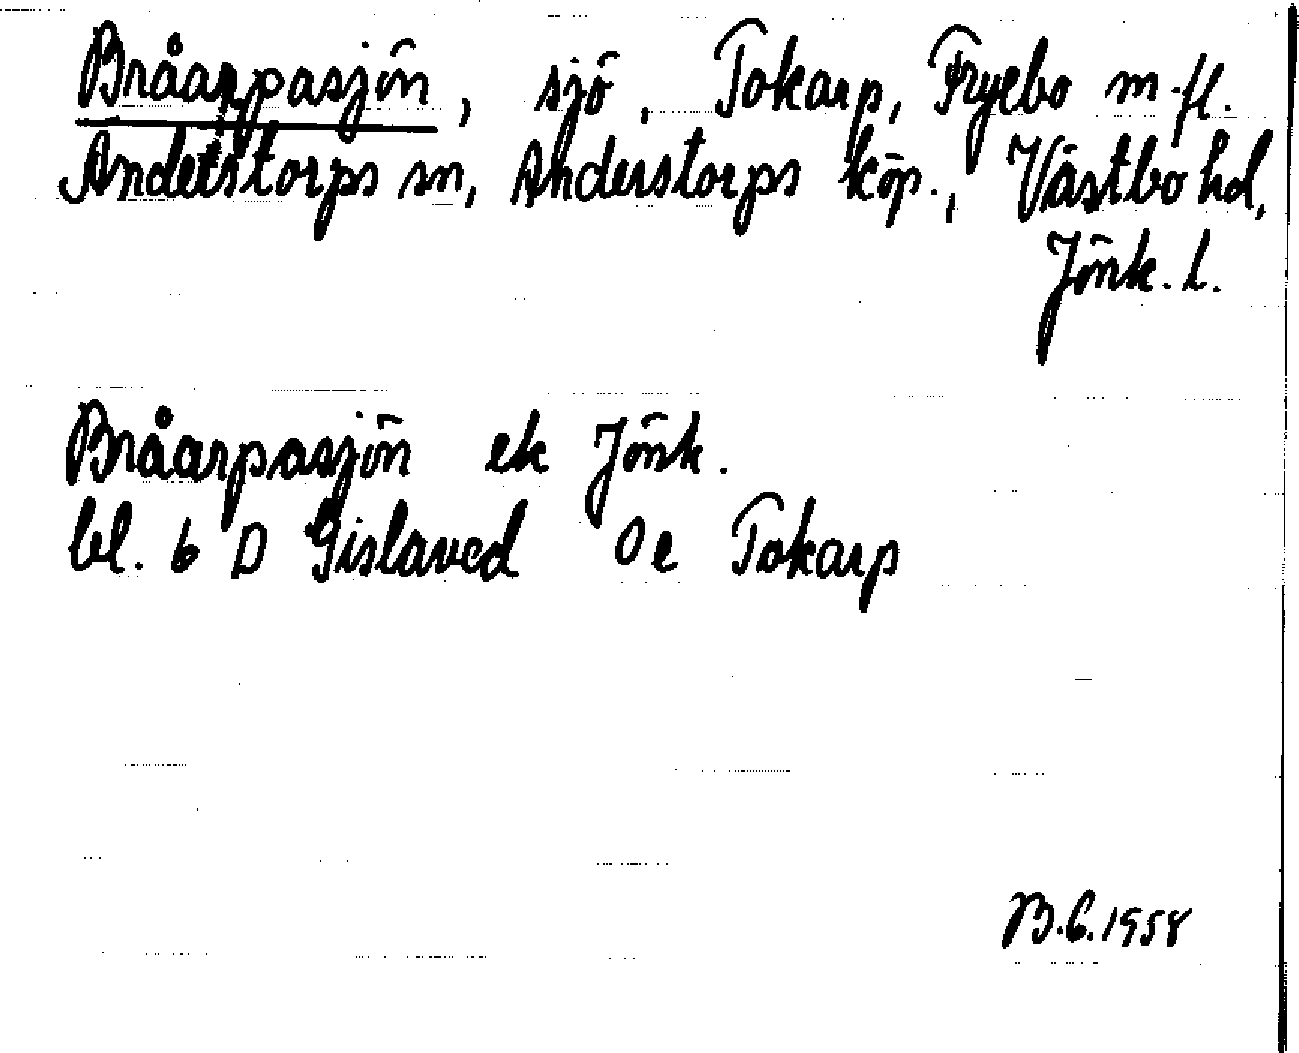 Bråarpasjön, sjö, Tokarp, Fryebo m.fl.
Anderstorps sn, Anderstorps köp., Västbo hd,
Jönk. l.
Bråarpasjön ek Jönk.
bl. 6 D Gislaved 0 e Tokarp
B.C. 1958